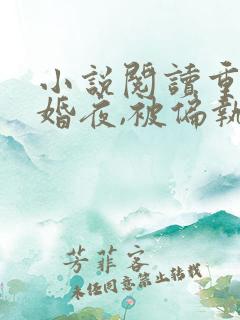 小説閱讀重
婚夜,被偏執
芳菲客
未經同意禁止转載